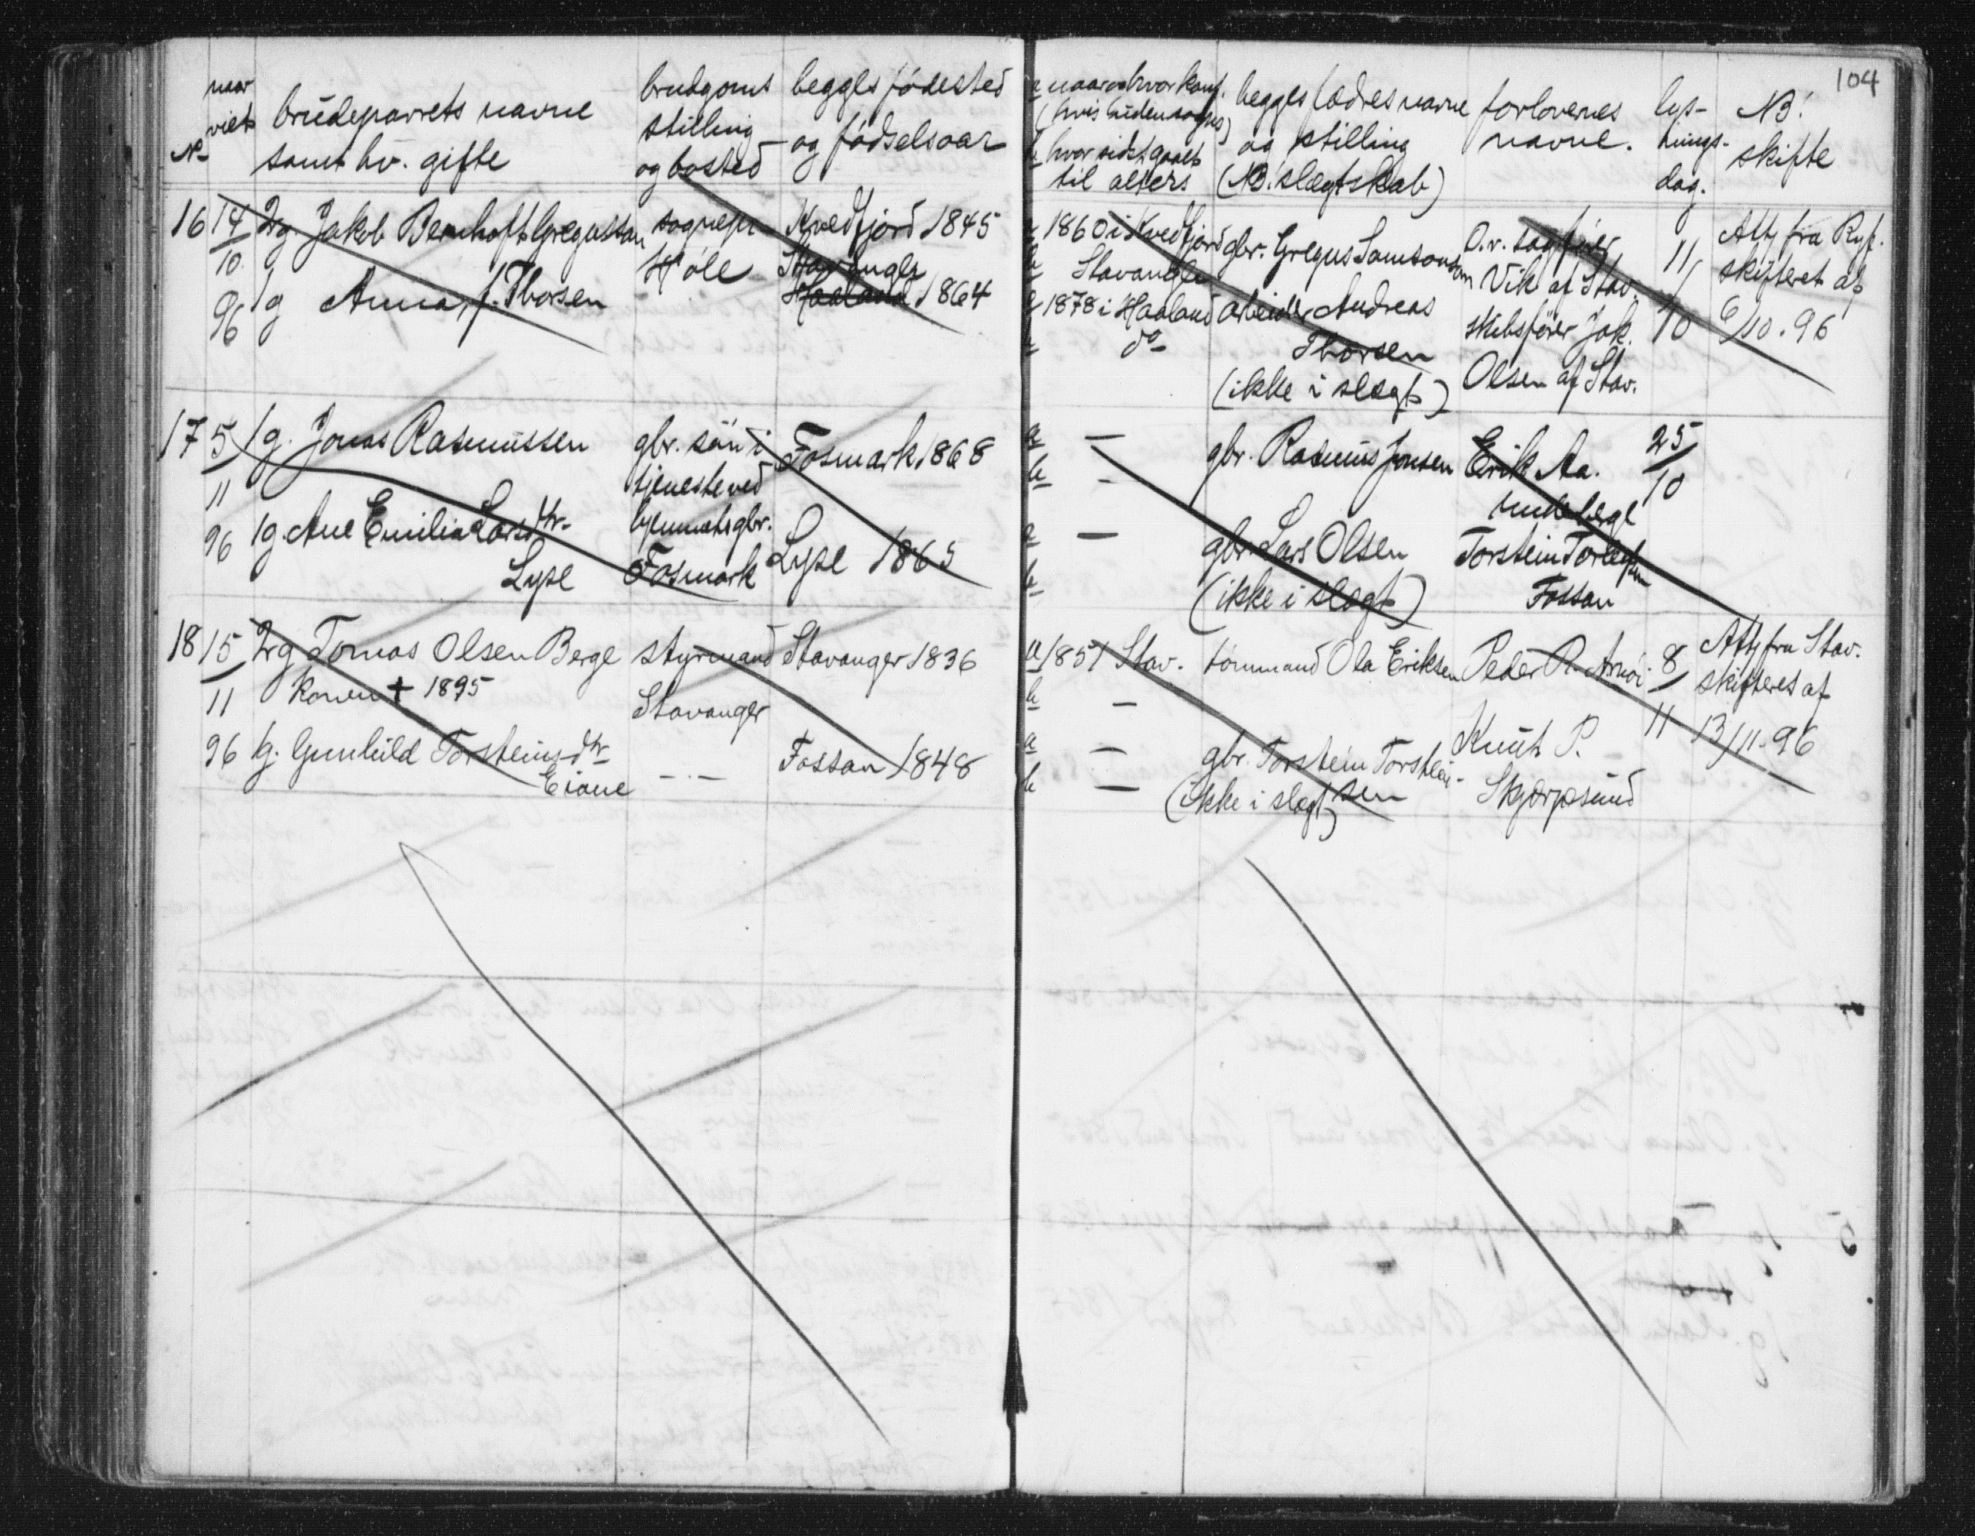 104
No
naar viet
brudeparrets navne
samt hv. gifte
brudgoms
stilling
og bosted
begges fødested
og fødselsaar
a naar og hvor konf.
(hvis udensogns)
b hvor sidst gaaet
til alters
begges fædres navne
og stilling
(NB. slægtskab)
forlovernes
navne.
lys-
nings-
dag.
NB!
skifte
16 14/10 96
2g Jakob Bernhoft Gregussen
1g Anna f. Thorsen
sognepr.
Høle
Kvedfjord 1845
Stavanger
Haaland 1864
a 1860 i Kvedfjord
b Stavanger
a 1878 i Haaland
b do
gbr. Gregus Samsonsen
arbeider Andreas
Thorsen
(ikke i slægt)
O.r. sagfører
Vik af Stav.
skibsfører Jak.
Olsen af Stav.
11/10
Att fra Ryf.
skifteret af
6/10. 96
17 5/11 96
1g. Jonas Rasmussen
1g. Ane Emilia Larsdtr.
Lyse
gbr. søn i
tjeneste ved
hjemmets gbr.
Fosmark
Fosmark 1868
Lyse 1865
a —
b -
a —
b
gbr. Rasmus Jonsen
gbr. Lars Olsen
(ikke i slægt)
Erik Aa.
Torstein Torleifsen
Fossan
25/10
18 15/11 96
2g Tomas Olsen Berge
konen † 1895
1g. Gunhild Torsteinsdtr.
Eiane
styrmand
Stavanger
— . —
Stavanger 1836
Fossan 1848
a 1851 Stav.
b —
a —
b —
tømmermand Ola Eriksen
gbr. Torstein Torstein-
sen
(ikke i slægt)
Peder R. Arnöi.
Knut P.
Skjørpesund
8/11
Att fra Stav.
skifteret af
13/11. 96